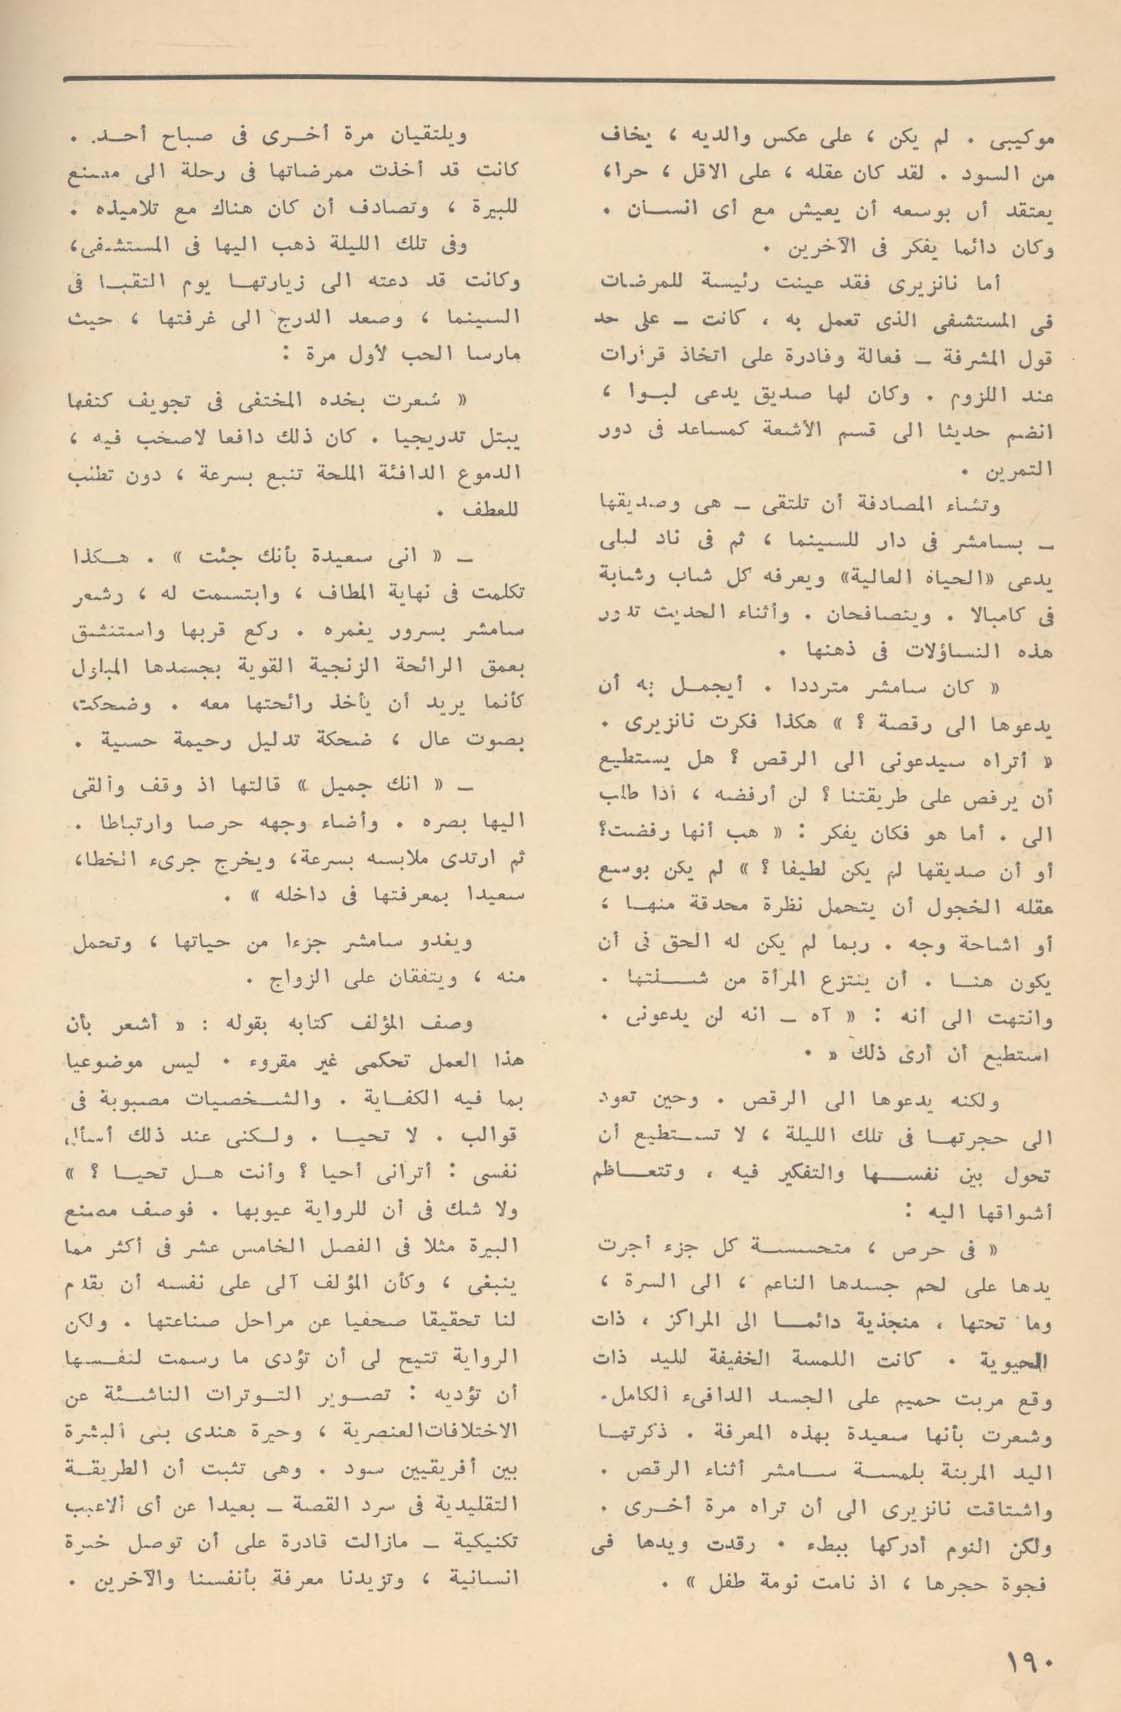 موكيبى . لم يكن ، على عكس والديه ، يخاف
من السود . لقد كان عقله ، على الاقل ، حرا ،
يعتقد أن بوسعه أن يعيش مع أى انســان .
وكان دائما يفكر فى الآخرين .
أما نانزيرى فقد عينت رئيسة للمرضات
فى المستشفى الذى تعمل به ، كانت ــ على حد
قول المشرفة ــ فعالة وقادرة على اتخاذ قرارات
عند اللزوم . وكان لها صديق يدعى لبــوا ،
انضم حديثا الى قسم الأشعة كمساعد فى دور
التمرين .
وتشاء المصادفة أن تلتقى ــ هى وصديقها
ــ بسامشر فى دار للسينما ، ثم فى ناد ليلى
يدعى «الحياة العالية» ويعرفه كل شاب وشابة
فى كامبالا . ويتصافحان . وأثناء الحديث تدور
هذه التساؤلات فى ذهنها .
« كان سامشر مترددا . أيجمــل به أن
يدعوها الى رقصة ؟ » هكذا فكرت نانزيرى .
« أتراه سيدعونى الى الرقص ؟ هل يستطيع
أن يرقص على طريقتنا ؟ لن أرفضه ، اذا طلب
الى . أما هو فكان يفكر : « هب أنها رفضت؟
أو أن صديقها لم يكن لطيفا ؟ » لم يكن بوسع
عقله الخجول أن يتحمل نظرة محدقة منهــا ،
أو اشاحة وجه . ربما لم يكن له الحق فى أن
يكون هنــا . أن ينتزع المرأة من شــــلتها .
وانتهت الى أنه : « آه ــ انه لن يدعونى .
استطيع أن أرى ذلك » .
ولكنه يدعوها الى الرقص . وحين تعود
الى حجرتهــا فى تلك الليلة ، لا تســتطيع أن
تحول بين نفســــها والتفكير فيه ، وتتعــاظم
أشواقها اليه :
« فى حرص ، متحسســة كل جزء أجرت
يدها على لحم جسدها الناعم ، الى السرة ،
وما تحتها ، منجذبة دائمــا الى المراكز ، ذات
الحيوية . كانت اللمسة الخفيفة لليد ذات
وقع مربت حميم على الجسد الدافىء الكامل .
وشعرت بأنها سعيدة بهذه المعرفة . ذكرتهــا
اليد المربتة بلمســة ســامشر أثناء الرقص .
واشتاقت نانزيرى الى أن تراه مرة أخــرى .
ولكن النوم أدركها ببطء . رقدت ويدها فى
فجوة حجرها ، اذ نامت نومة طفل » .
ويلتقيان مرة أخــرى فى صباح أحــد .
كانت قد أخذت ممرضاتها فى رحلة الى مصنع
للبيرة ، وتصادف أن كان هناك مع تلاميذه .
وفى تلك الليلة ذهب اليها فى المستشفى ،
وكانت قد دعته الى زيارتهــا يوم التقيــا فى
السينما ، وصعد الدرج الى غرفتها ، حيث
مارسا الحب لأول مرة :
« شعرت بخده المختفى فى تجويف كتفها
يبتل تدريجيا . كان ذلك دافعا لاصخب فيه ،
الدموع الدافئة الملحة تنبع بسرعة ، دون تطلب
للعطف .
ــ « انى سعيدة بأنك جئت » . هــكذا
تكلمت فى نهاية المطاف ، وابتسمت له ، وشعر
سامشر بسرور يغمره . ركع قربها واستنشق
بعمق الرائحة الزنجية القوية بجسدها المبلول
كأنما يريد أن يأخذ رائحتها معه . وضحكت
بصوت عال ، ضحكة تدليل رحيمة حسية .
ــ « انك جميل » قالتها اذ وقف وألقى
اليها بصره . وأضاء وجهه حرصا وارتباطا .
ثم ارتدى ملابسه بسرعة، ويخرج جرىء الخطا،
سعيدا بمعرفتها فى داخله » .
ويغدو سامشر جزءا من حياتها ، وتحمل
منه ، ويتفقان على الزواج .
وصف المؤلف كتابه بقوله : « أشعر بأن
هذا العمل تحكمى غير مقروء . ليس موضوعيا
بما فيه الكفــاية . والشــخصيات مصبوبة فى
قوالب . لا تحيــا . ولــكنى عند ذلك أسأل
نفسى : أترانى أحيا ؟ وأنت هــل تحيــا ؟ »
ولا شك فى أن للرواية عيوبها . فوصف مصنع
البيرة مثلا فى الفصل الخامس عشر فى أكثر مما
ينبغى ، وكأن المؤلف آلى على نفسه أن يقدم
لنا تحقيقا صحفيا عن مراحل صناعتها . ولكن
الرواية تتيح لى أن تؤدى ما رسمت لنفــسها
أن تؤديه : تصــوير التــوترات الناشــئة عن
الاختلافات العنصرية ، وحيرة هندى بنى البشرة
بين أفريقيين سود . وهى تثبت أن الطريقــة
التقليدية فى سرد القصة ــ بعيدا عن أى ألاعيب
تكنيكية ــ مازالت قادرة على أن توصل خبرة
انسانية ، وتزيدنا معرفة بأنفسنا والآخرين .
١٩٠